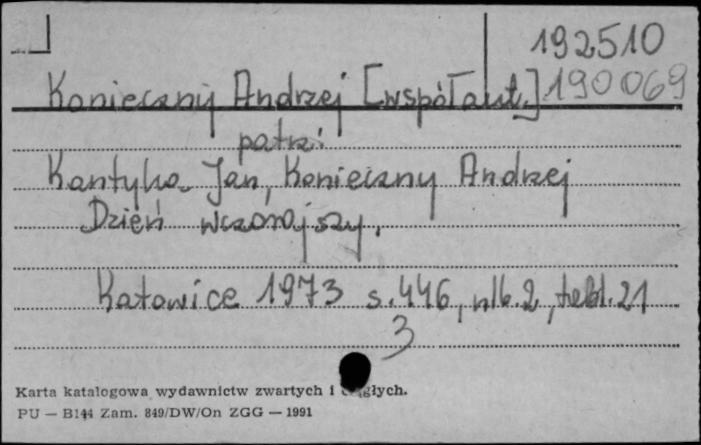 192510
Konieczny Andrzej [współaut.] 190069
patrz:
Kantyka Jan, Konieczny Andrzej
Dzień wczorajszy.
Katowice 1973 s. 446, nlb. 2, tabl. 21
3
Karta katalogowa wydawnictw zwartych i ciągłych.
PU — B144 Zam. 849/DW/On ZGG — 1991